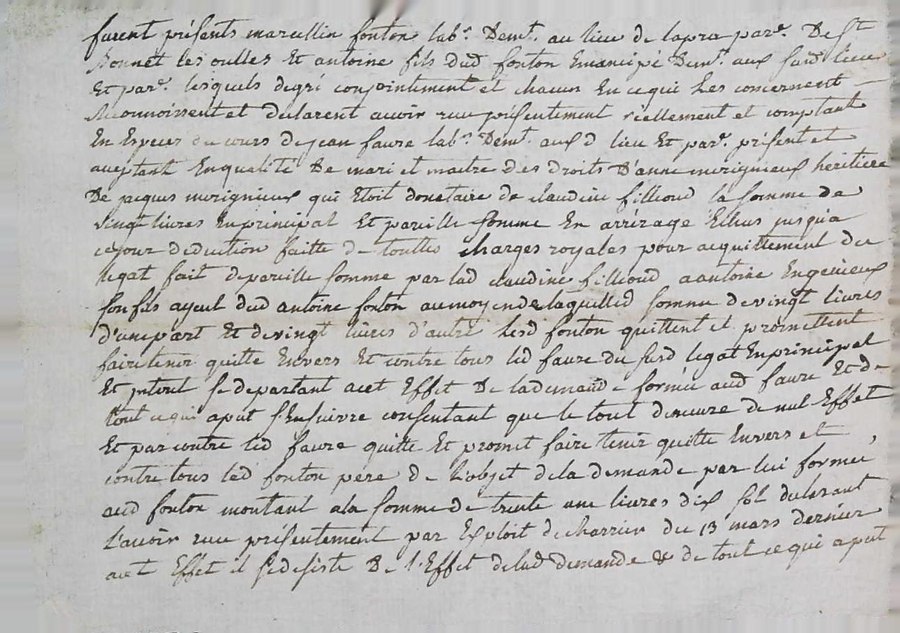 furent présents marcellin fonton lab.r Dem.t au lieu de lapra par.e De st
Bonnet les oulles Et antoine fils dud fonton Emancipé Dem.t aux susd lieu
Et par.e lesquels degré conjointement et chacun En cequi Les concernent
Reconnoissent et déclarent avoir reçu présentement réellement et comptant
En Especes du cours de jean faure lab.r Dem.t aux d lieu Et par.e présent et
aceptant Enqualité De mari et maitre des droits D'anne merignieux héritiere
De jacques merignieux qui Etoit donetaire de claudine fillioud la somme de
vingt livres Enprincipal Et pareille somme En arrérage Echus jusqu'a
cejour déduction faitte de touttes charges royales pour acquittement du
legat fait depareille somme par lad claudine fillioud a antoine Engenieux
son fils ayeul dud antoine fonton aumoyen de laquelled somme devingt livres
d'unepart Et devingt livres d'autre Lesd fonton quittent et promettent
faire tenir quitte Envers Et contre tous led faure du susd legat Enprincipal
Et intérêt se departant acet Effet De lademande formée aud faure Et de
tout cequi aput s'Ensuivre consentant que le tout demeure de nul Effet
Et par contre led faure quitte Et promet faire tenir quitte Envers et
contre tous led fonton pere de L'objet dela demande par lui formée
aud fonton montant ala somme de trente une livres dix sol déclarant
L'avoir reçu présentement par Exploit de charrier du 13 mars dernier
acet Effet il se desiste De l'Effet delad demande & de tout ce qui a put